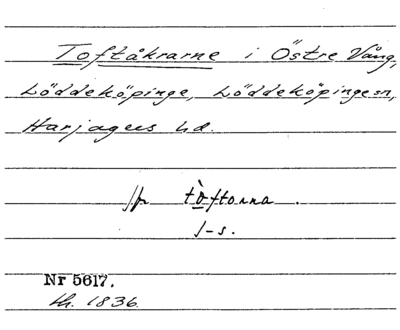 Toftåkrarne i Östre Vång,
Löddeköpinge, Löddeköpinge sn,
Harjagers hd.
tòftorna.
J-s.
Nr 5617.
th. 1836.